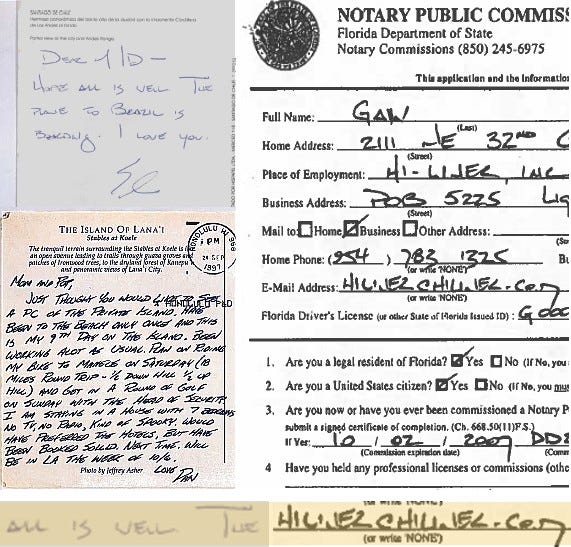 SANTIAGO DE CHILE
Dear M D –
HOPE ALL IS WELL. THE
PLANE TO BRAZIL IS
BOARDING. I LOVE YOU.
THE ISLAND OF LANA'I
Stables at Koele
The tranquil terrain surrounding the Stables at Koele is
an open avenue leading to trails through guava groves and
patches of Ironwood trees, to the dryland forest of Kanepu
and panoramic views of Lana'i City.
HONOLULU HI 968
PM
24 SEP
1997
HONOLULU P&D
MOM AND POP,
JUST THOUGHT YOU WOULD LIKE TO SEE
A PC OF THE PRIVATE ISLAND. HAVE
BEEN TO THE BEACH ONLY ONCE AND THIS
IS MY 9TH DAY ON THE ISLAND. BEEN
WORKING ALOT AS USUAL. PLAN ON RIDING
MY BIKE TO MANELE ON SATURDAY (18
MILES ROUND TRIP – ½ DOWN HILL ½ UP
HILL) AND GET IN A ROUND OF GOLF
ON SUNDAY WITH THE HEAD OF SECURITY
I AM STAYING IN A HOUSE WITH 7 BEDROOMS
NO TV, NO RADIO, KIND OF SPOOKY. WOULD
HAVE PREFERRED THE HOTELS, BUT HAVE
BEEN BOOKED SOLID. NEXT TIME. WILL
BE IN LA THE WEEK OF 10/6.
LOVE
DAN
Photo by Jeffrey Asher
NOTARY PUBLIC COMMISS
Florida Department of State
Notary Commissions (850) 245-6975
This application and the informatio
Full Name: GAW
(Last)
Home Address: 2111 NE 32ND C
(Street)
Place of Employment: HI-LINER, INC
Business Address: POB 5225 Lig
(Street)
Mail to: Home Business Other Address:
Home Phone: (954) 783 1325 Bu
(or write 'NONE')
E-Mail Address: HILINER@HILINER.COM
(or write 'NONE')
Florida Driver's License (or other State of Florida Issued ID) : G 000
1. Are you a legal resident of Florida? Yes No (If No, you
2. Are you a United States citizen? Yes No (If No, you mus
3. Are you now or have you ever been commissioned a Notary P
submit a signed certificate of completion. (Ch. 668.50(11)F.S.)
If Yes: 10 / 02 / 2007 DD2
(Commission expiration date) (Comm
4 Have you held any professional licenses or commissions (othe
ALL IS WELL. THE
(or write 'NONE')
HILINER@HILINER.COM
(or write 'NONE')